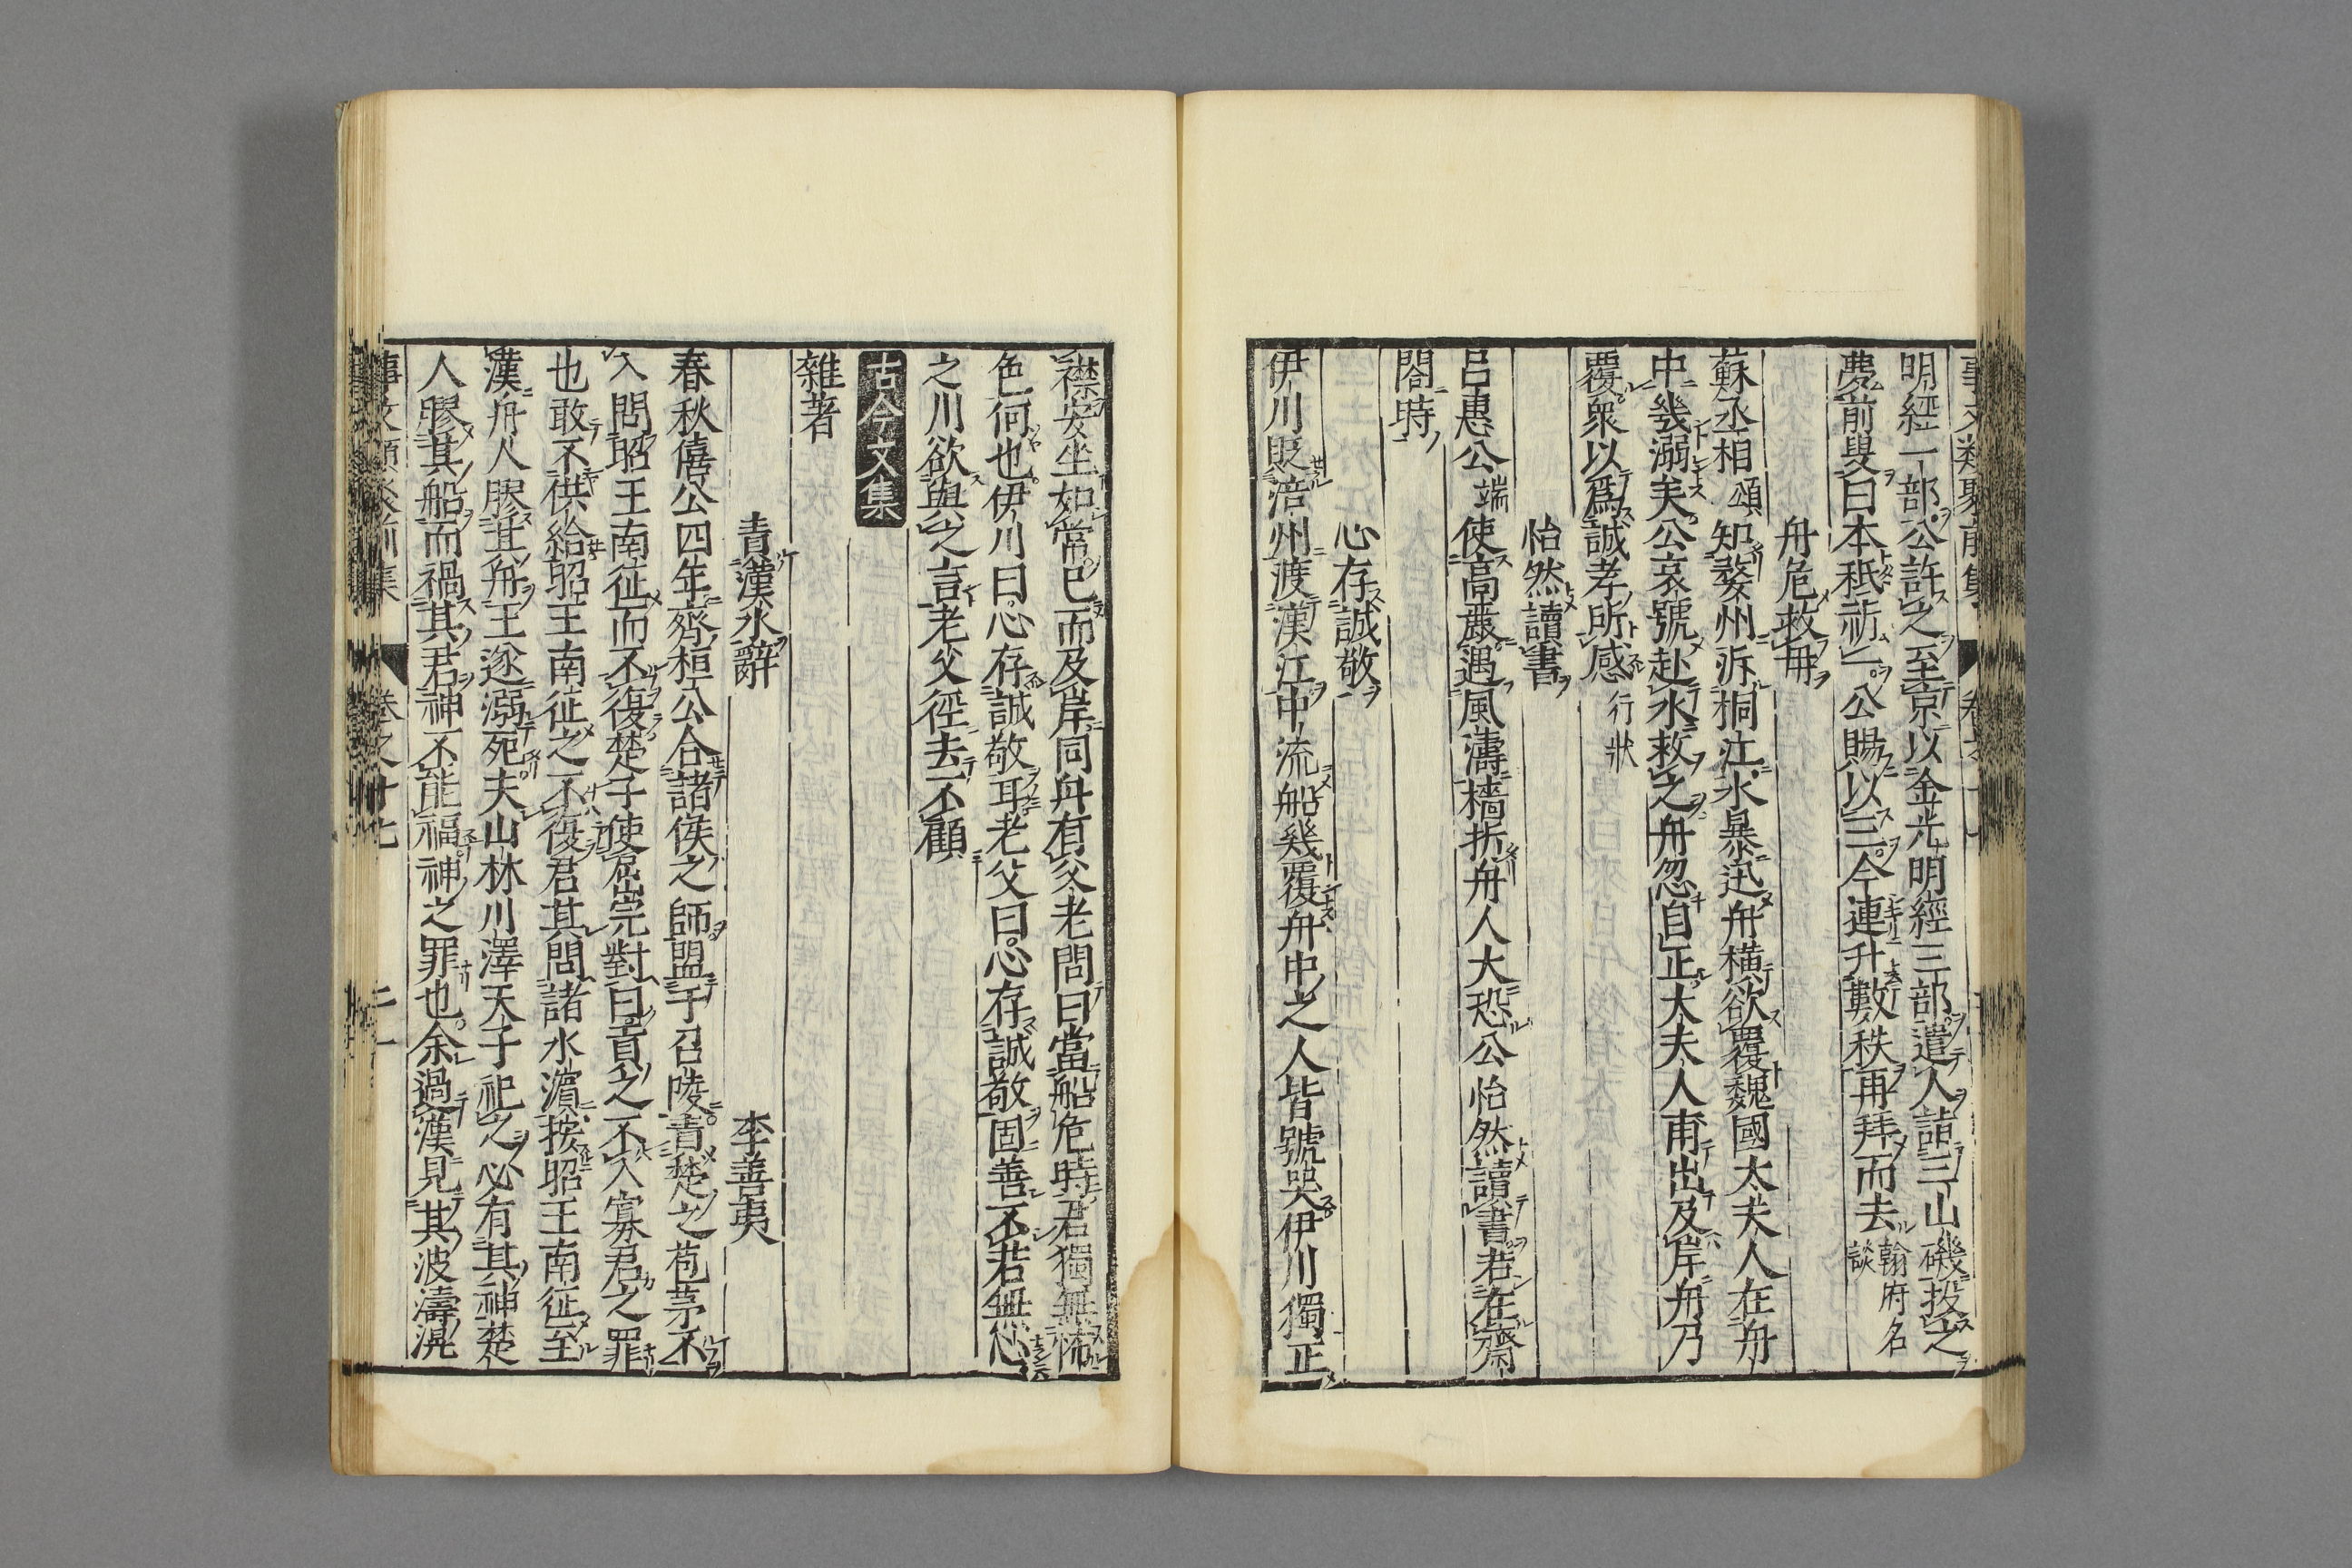 明經一部公許之至京以金光明經三部遣人詣三山磯投之
夢前叟曰本秪祈一公賜以三今連升數秩再拜而去翰府名談
舟危救母
蘇丞相頌知婺州泝桐江水暴迅舟橫欲覆魏國太夫人在舟
中幾溺矣公哀號赴水救之舟忽自正太夫人甫出及岸舟乃
覆衆以爲誠孝所感行狀
怡然讀書
呂惠公端使高麗遇風濤檣折舟人大恐公怡然讀書若在齋
閤時
心存誠敬
伊川貶涪州渡漢江中流船幾覆舟中之人皆號哭伊川獨正
襟安坐如常已而及岸同舟有父老問曰當船危時君獨無怖
色何也伊川曰心存誠敬耳老父曰心存誠敬固善不若無心
之川欲與之言老父徑去不顧
古今文集
雜著
責漢水辭 李善夷
春秋僖公四年齊桓公合諸侯之師盟于召陵責楚之苞茅不
入問昭王南征而不復楚子使屈完對曰貢之不入寡君之罪
也敢不供給昭王南征之不復君其問諸水濵按昭王南征至
漢舟人膠其舟王遂溺死夫山林川澤天子祀之必有其神楚
人膠其船而禍其君神不能福神之罪也余過漢見其波濤滉
卷之十七